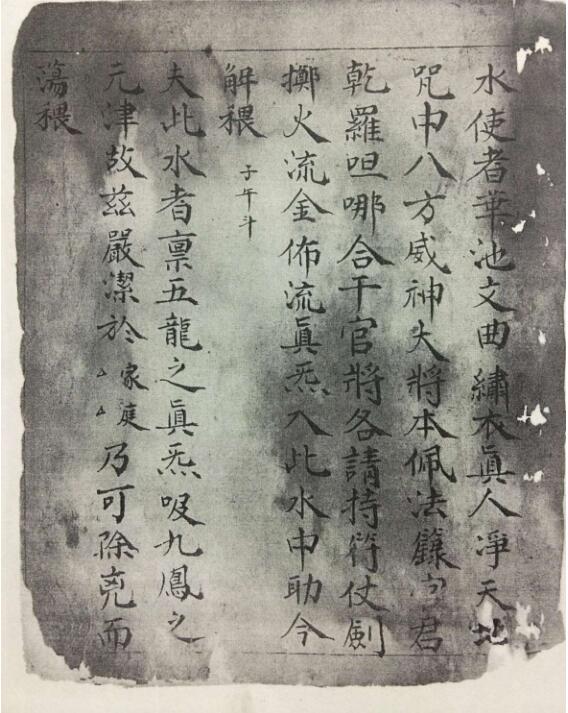 水使者華池文曲繡衣眞人淨天地
咒中八方威神大將本佩法籙官君
乾羅呾哪合干官將各請持符仗劍
擲火流金佈流眞炁入此水中助今
解穢 子午斗
夫此水者禀五龍之眞炁吸九鳳之
元津故兹嚴潔於△△家庭乃可除兇而
蕩穢